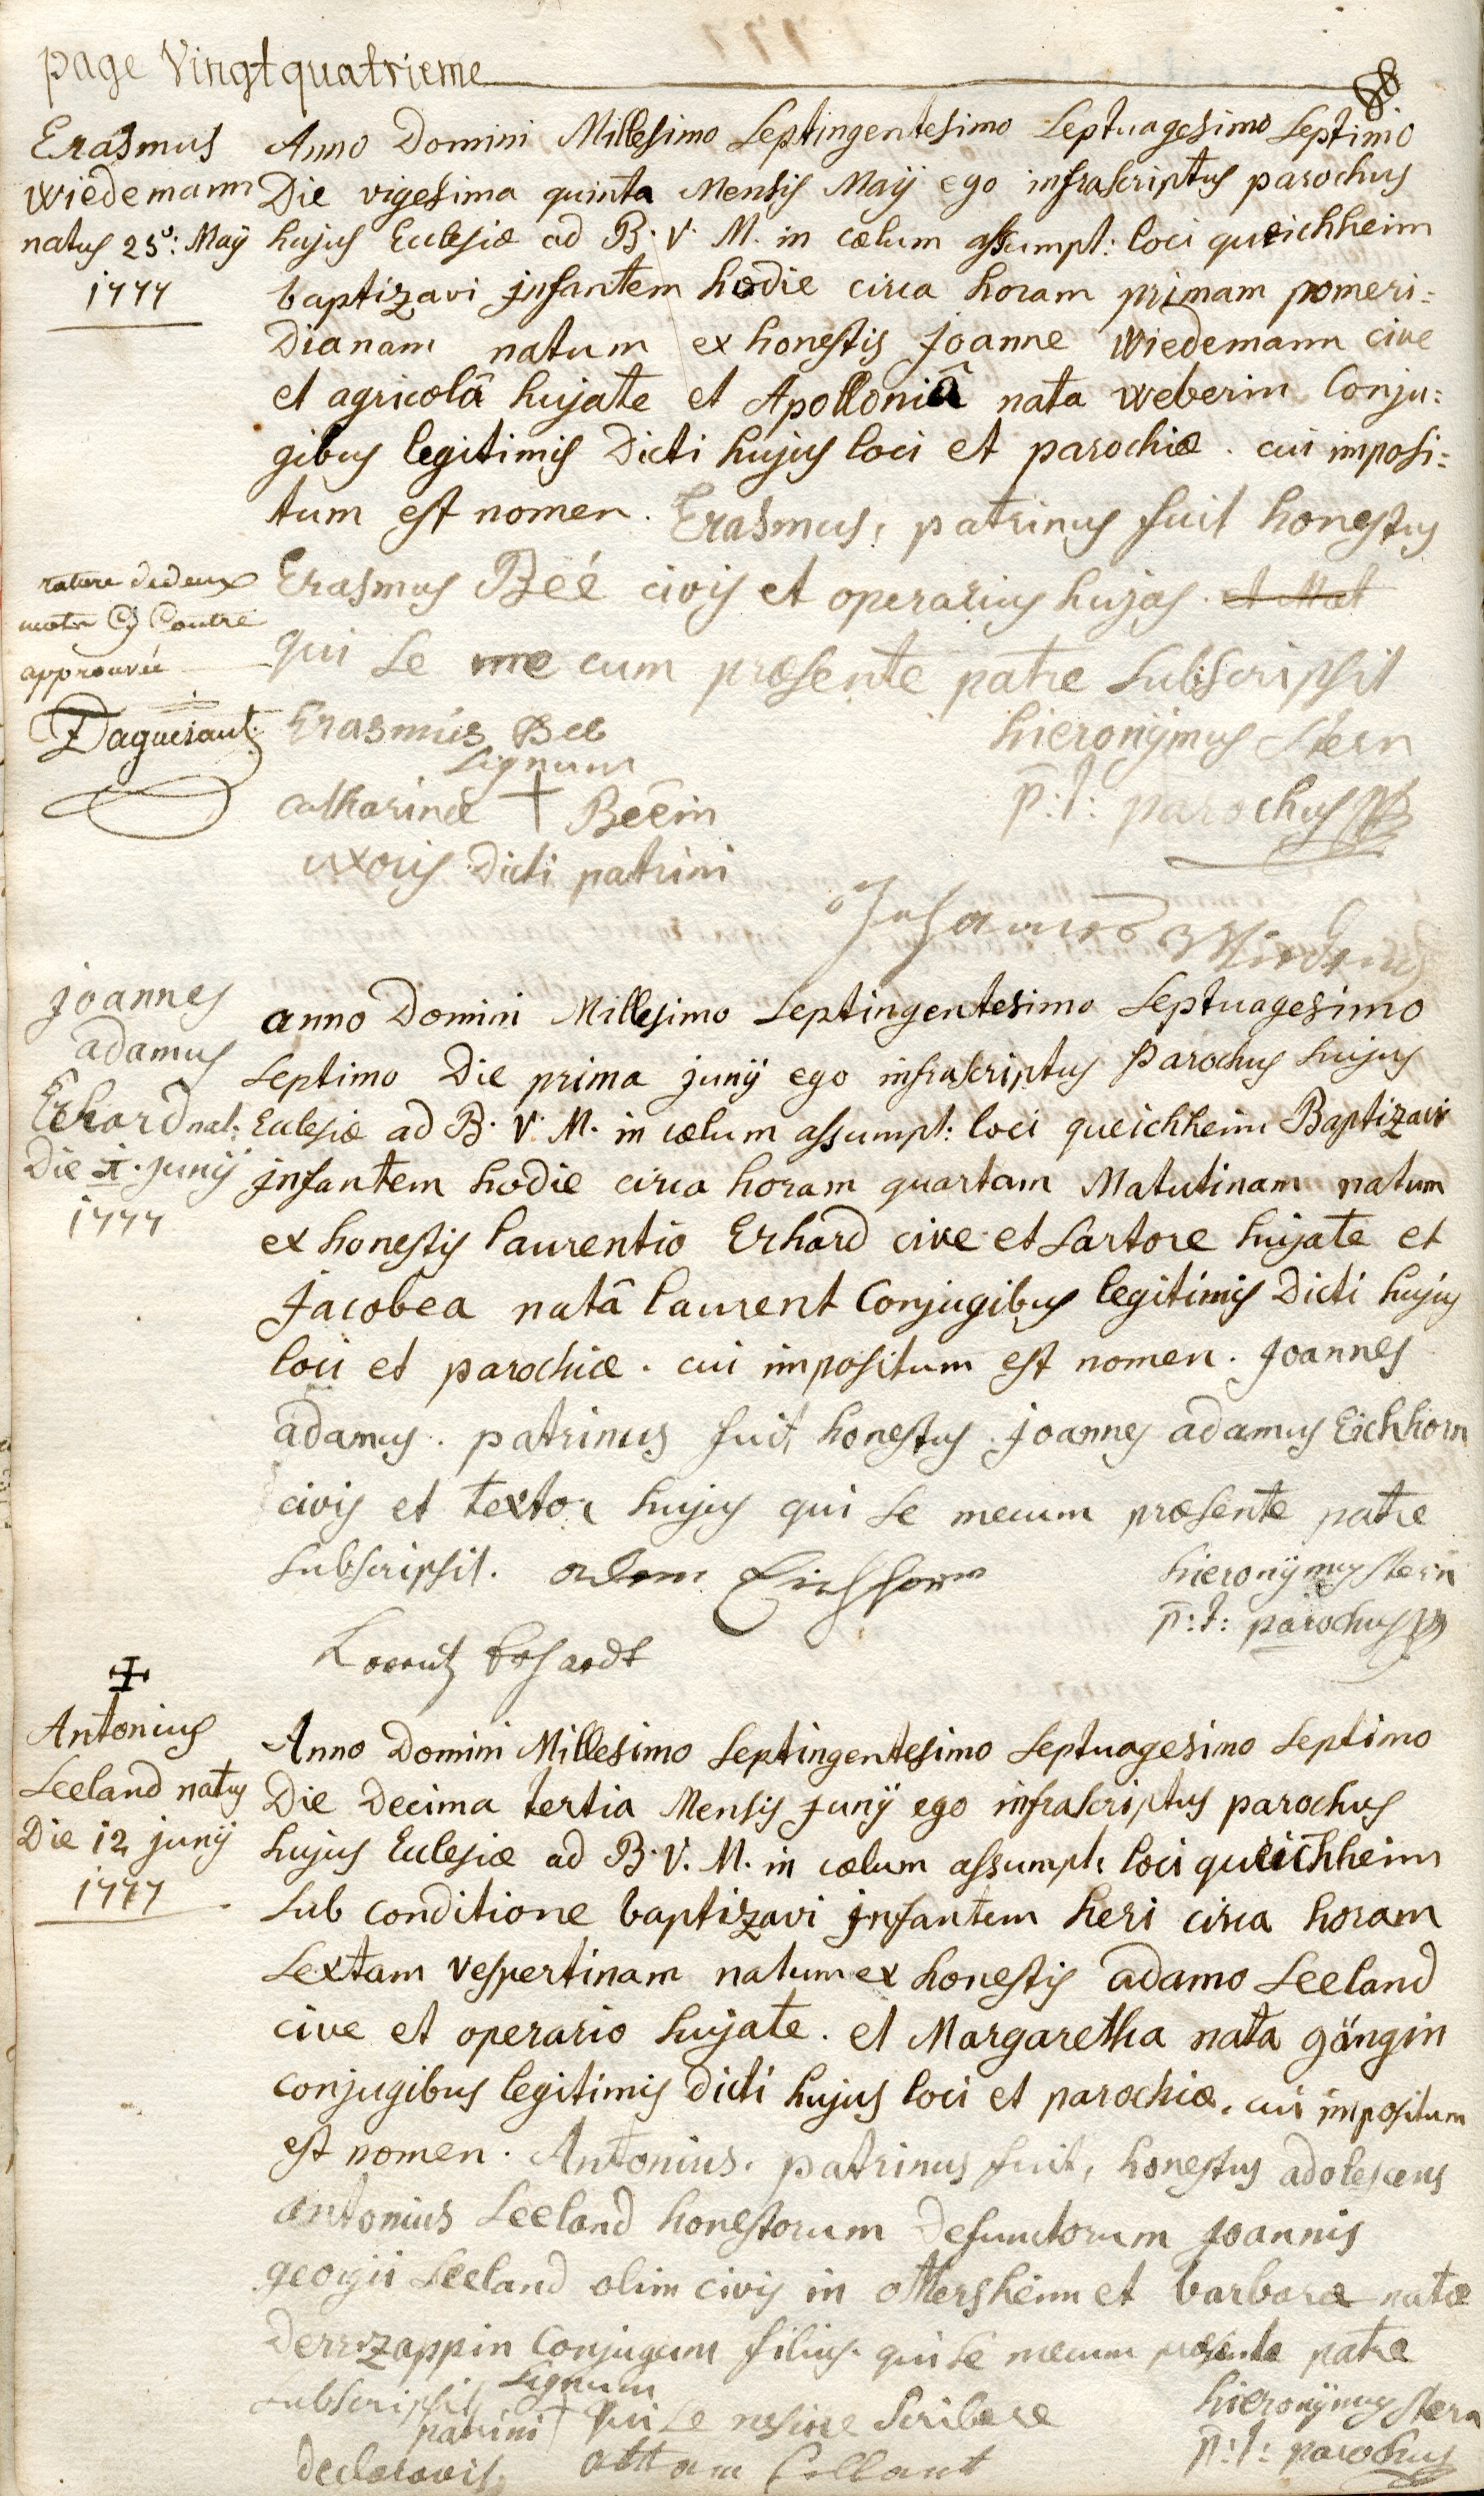 page Vingtquatrieme
Erasmus
Wiedemann
natus 25º: Maÿ
1777
Anno Domini Millesimo Septingentesimo Septuagesimo Septimo
Die vigesima quinta Mensis Maÿ ego infrascriptus parochus
hujus Eclesiæ ad B. V. M. in cælum assumpt: loci queichheim
baptizavi jnfantem hodie circa horam primam pomeri=
Dianam natum ex honestis Joanne Wiedemann cive
et agricolâ hujate et Apolloniâ nata Weberin Conju=
gibus legitimis Dicti hujus loci et parochiæ. cui imposi=
tum est nomen. Erasmus, patrinus fuit honestus
Erasmus Beé civis et operarius hujas. et Mat
qui se me cum præsente patre subscripsit
rature de deux
mots Cy Contre
approuvée
Daguesant
Erasmus Bee
Signum
Catharinæ + Beéin
uxoris Dicti patrini
hieronÿmus Stern
p:t: parochus
Johannes
joannes
adamus
Erhard nat:
Die 1. junÿ
1777
anno Domini Millesimo Septingentesimo Septuagesimo
Septimo Die prima junÿ ego infrascriptus Parochus hujus
Eclesiæ ad B. V. M. in cælum assumpt: loci queichheim Baptizavi
jnfantem hodie circa horam quartam Matutinam natum
ex honestis Laurentio Erhard cive et Sartore hujate et
Jacobea natâ Laurent Conjugibus legitimis Dicti hujus
loci et parochiæ. cui impositum est nomen. Joannes
adamus. patrinus fuit honestus joannes adamus Eichhorn
civis et textor hujus qui se mecum præsente patre
subscripsit. adam Eichhorn
hieronÿmus Stern
p:t: parochus
Lorentz Erhardt
Antonius
Seeland natus
Die 12 junÿ
1777
Anno Domini Millesimo Septingentesimo Septuagesimo Septimo
Die Decima tertia Mensis junÿ ego infrascriptus parochus
hujus Eclesiæ ad B. V. M. in cælum assumpt: loci queichheim
Sub conditione baptizavi jnfantem heri circa horam
Sextam vespertinam natum ex honestis adamo Seeland
cive et operario hujate. et Margaretha nata gängin
conjugibus legitimis dicti hujus loci et parochiæ. cui impositum
est nomen. Antonius. patrinus fuit, honestus adolescens
antonius Seeland honestorum Defunctorum Joannis
georgii Seeland olim civis in ottersheim et barbaræ natæ
Derrzappin Conjugum filius. qui se mecum præsente patre
subscripsit, Signum
patrini + qui se nescire Scribere
declaravit,
hieronÿmus Stern
p:t: parochus